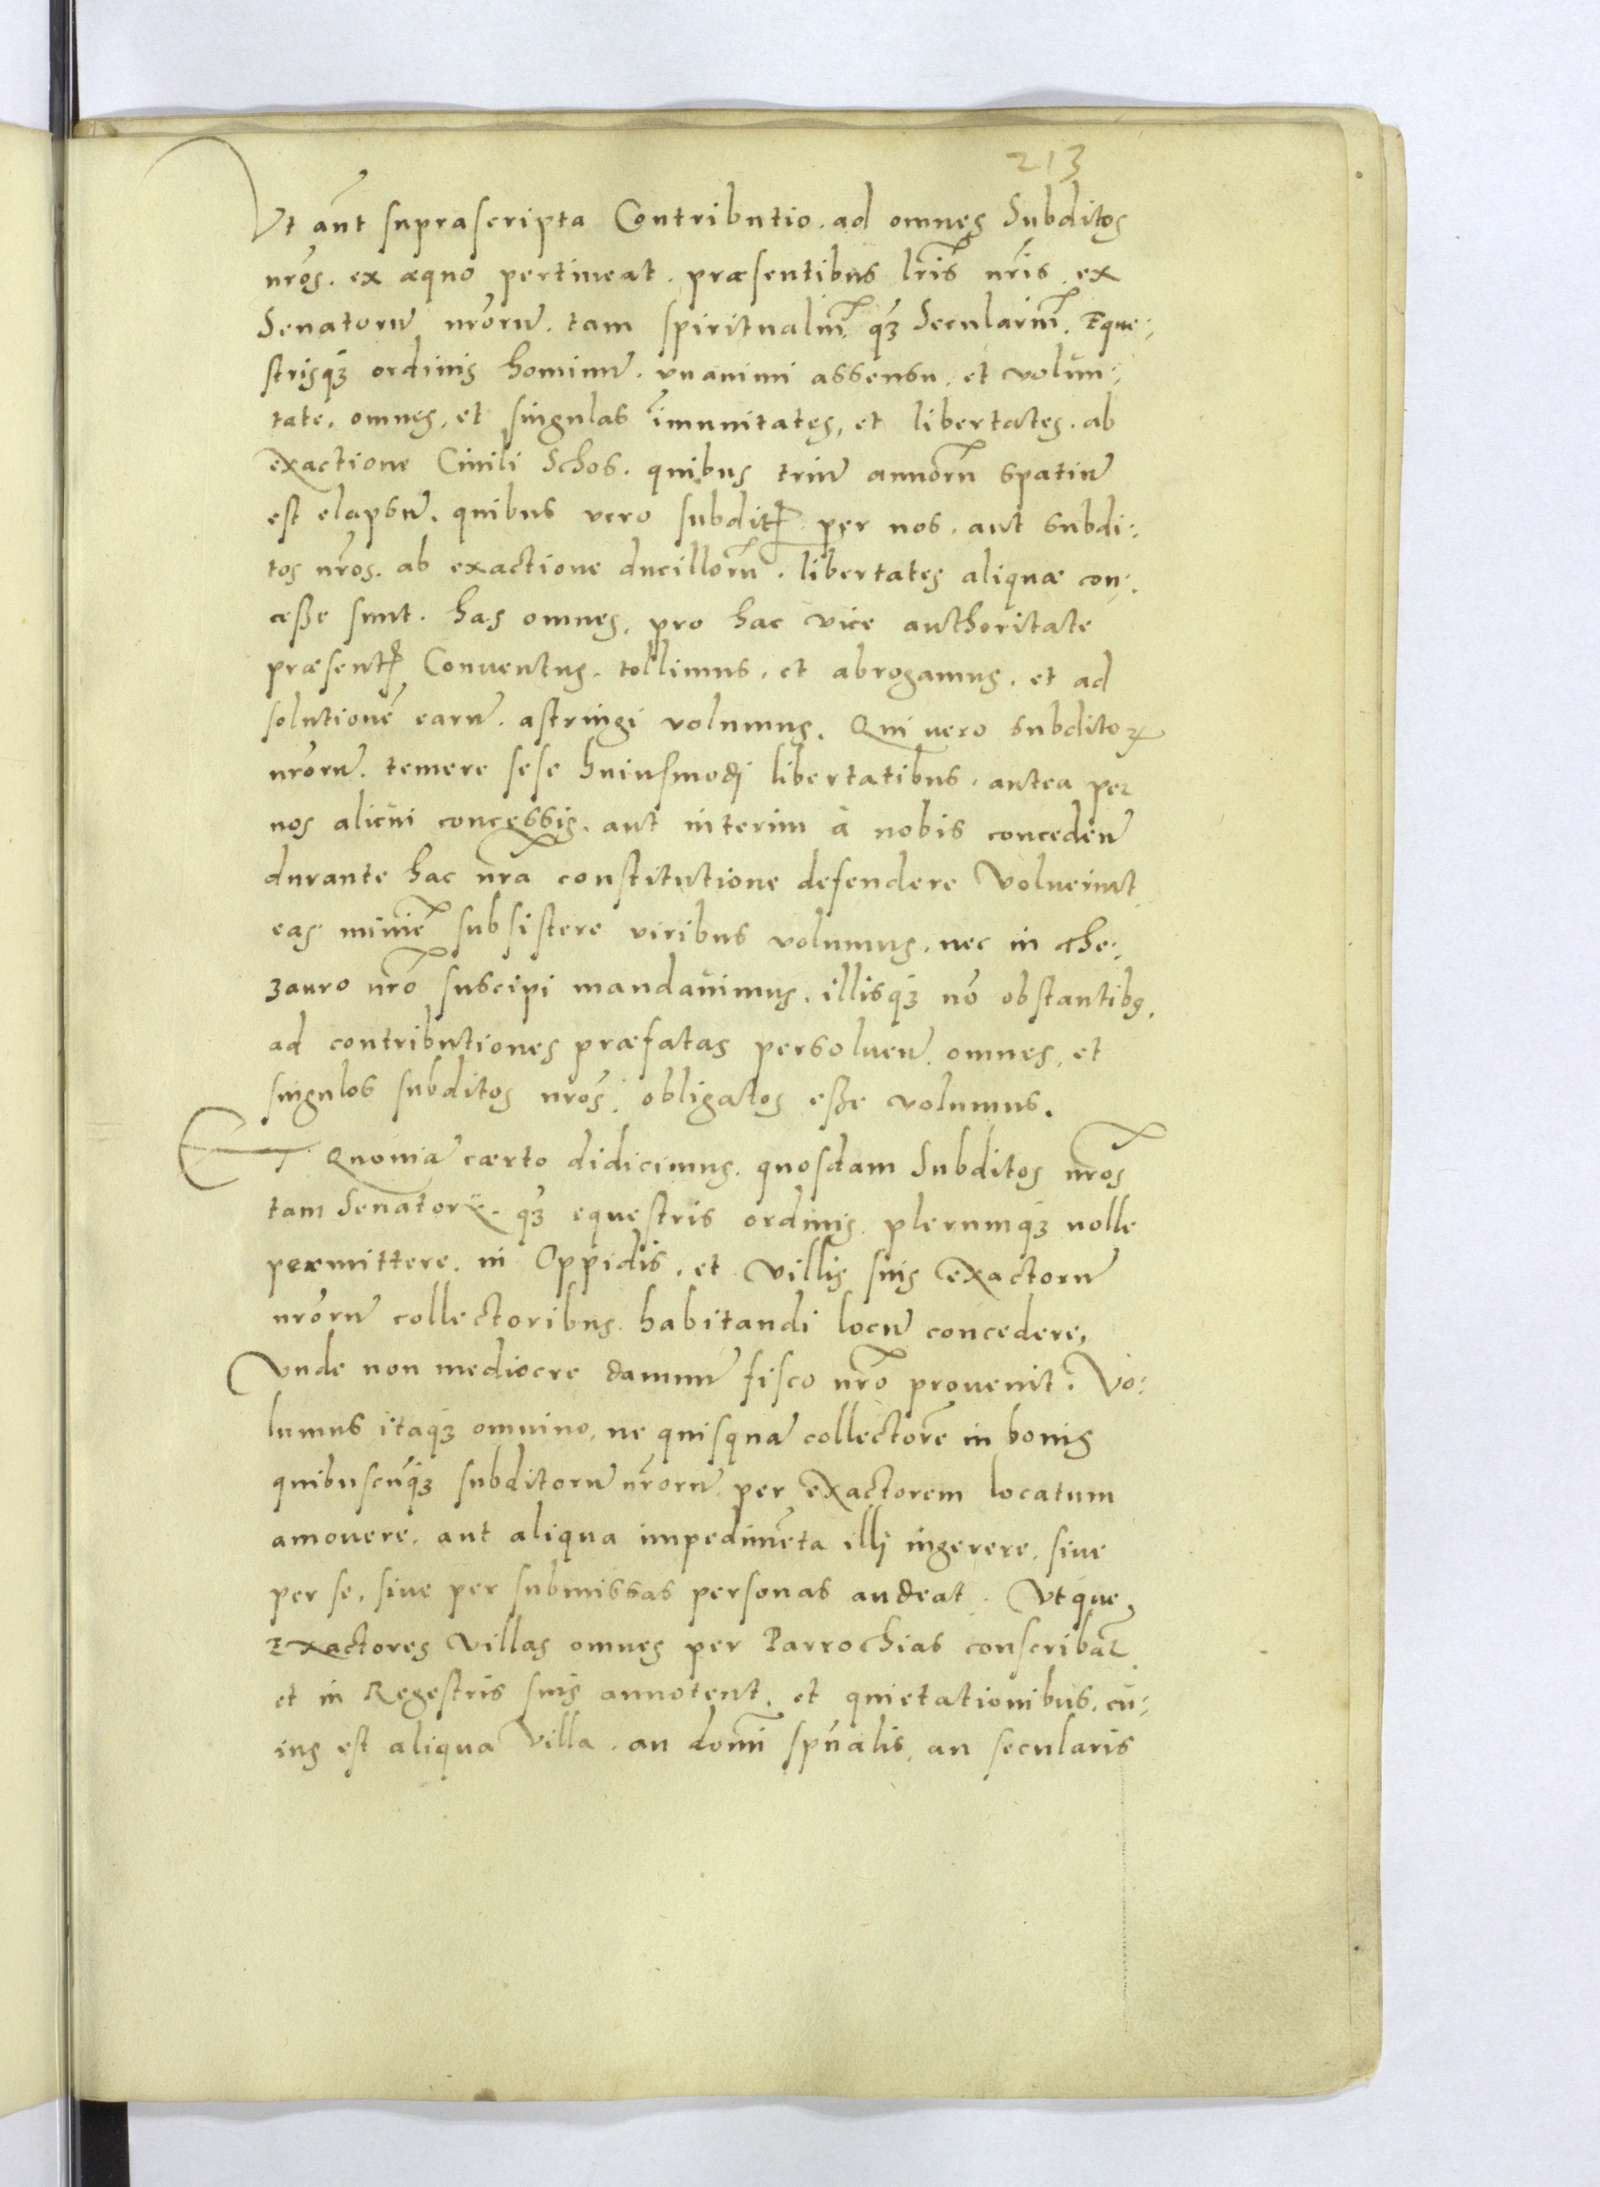 213
Vt aūt suprascripta Contributio. ad omnes Subditos
nr̄os. ex æquo pertineat. præsentibus lr̄is nr̄is. ex
Senatorū nr̄orū. tam spiritualiū. q̄ʒ Seculariū. Eque:
strisqʒ ordinis hominū. vnanimi assensu. et volun:
tate, omnes, et singulas im̄unitates, et libertates. ab
exactione Ciuili Schos. quibus triū annorū spatiū
est elapsū. quibus vero subditꝭ per nos. aut subdi:
tos nr̄os. ab exactione ducillorū. libertates aliquæ con:
cesse sunt. has omnes, pro hac vice authoritate
præsentꝭ Conuentus. tollimus. et abrogamus. et ad
solutionē earū. astringi volumus. Qui vero subditoꝝ
nr̄orū. temere sese huiusmodj libertatibus. antea per
nos alicui concessis. aut interim à nobis concedēn̄
durante hac nr̄a constitutione defendere Voluerint
eas minime subsistere viribus volumus. nec in The:
zauro nr̄o suscipi mandauimus. illisqʒ nō obstantibꝰ,
ad contributiones præfatas persoluen̄. omnes, et
singulos subditos nr̄os, obligatos esse volumus.
ET Quoniā cærto didicimus. quosdam Subditos nr̄os
tam Senatorij. q̄ʒ equestris ordinis. plerumqʒ nolle
permittere. in Oppidis. et Villis suis Exactorū
nr̄orū collectoribus habitandi locū concedere,
Vnde non mediocre damnū fisco nr̄o prouenit. Vo:
lumus itaqʒ omnino, ne quisquā collectorē in bonis
quibuscūqʒ subditorū nr̄orū. per Exactorem locatum
amouere. aut aliqua impedimēta illj ingerere. siue
per se, siue per submissas personas audeat. Vtque,
Exactores Villas omnes per Parrochias conscribāt
et in Regestris suis annotent, et quietationibus. cu:
ius est aliqua Villa. an domi sp̄ualis, an secularis